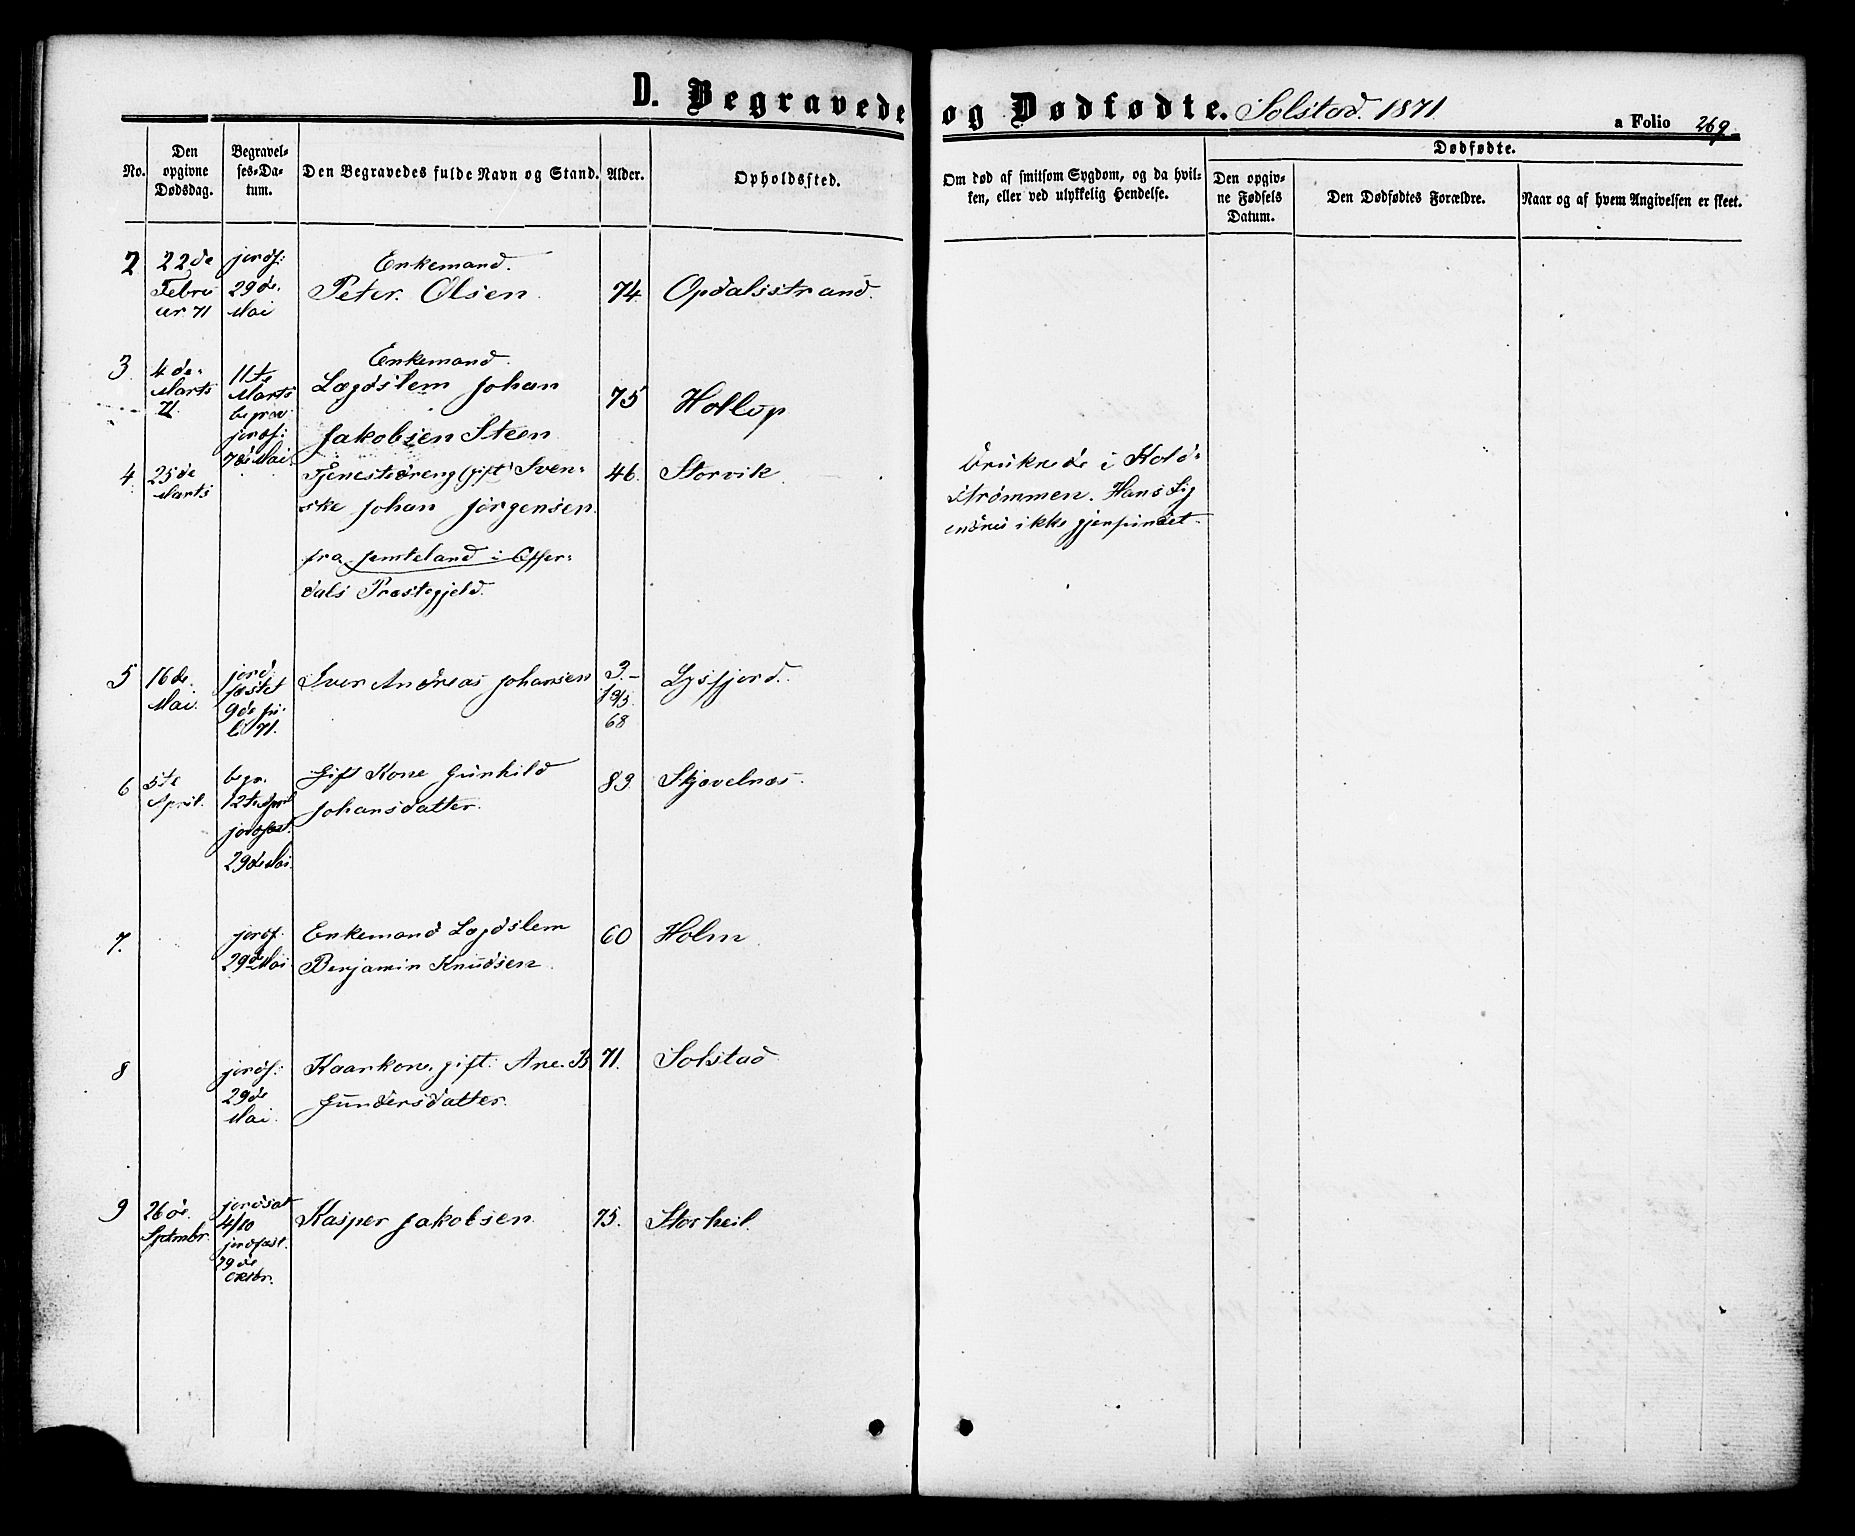 D. Begravede og Dødfødte. Solstad. 1871
a Folio 269.
No.
Den opgivne Dødsdag.
Begravelses-Datum.
Den Begravedes fulde Navn og Stand.
Alder.
Opholdssted.
Om død af smitsom Sygdom, og da hvilken, eller ved ulykkelig Hendelse.
Dødfødte.
Den opgivne Fødsels Datum.
Den Dødfødtes Forældre.
Naar og af hvem Angivelsen er skeet.
2
22de
Febru
ar 71
jordf:
29de
Mai
Enkemand.
Peter Olsen
74
Opdalsstrand.
3
4de
Marts
71.
11te
Marts
begrav
jordf:
7de Mai
Enkemand.
Lægdslem Johan
Jakobsen Steen
75
Hollup
4
25de
Marts
Tjenestedreng (gift) Sven-
ske Johan Jørgensen
fra Jemteland i Offer-
dals Præstegjeld.
46
Storvik
Druknede i Kold-
strømmen. Hans Lig
endnu ikke gjenfundet.
5
16de
Mai.
jord
fæstet
9de Ju-
li 71.
Iver Andreas Johansen
3.-
68
Lysfjord.
6
5te
April.
begr.
12te April
jordfæst.
29de Mai.
Gift Kone Gunhild
Johansdatter.
83
Skjævelnæs.
7.
jordf.
29de Mai.
Enkemand Lægdslem
Benjamin Knudsen
60
Holm
8
jordf:
29de
Mai.
Kaarkone, gift. Ane. B.
Gundersdatter.
71.
Solstad
9
26de
Septmbr.
jordsat
4/10
jordfæst.
29de
Oktbr.
Kasper Jakobsen
75.
Storheil.